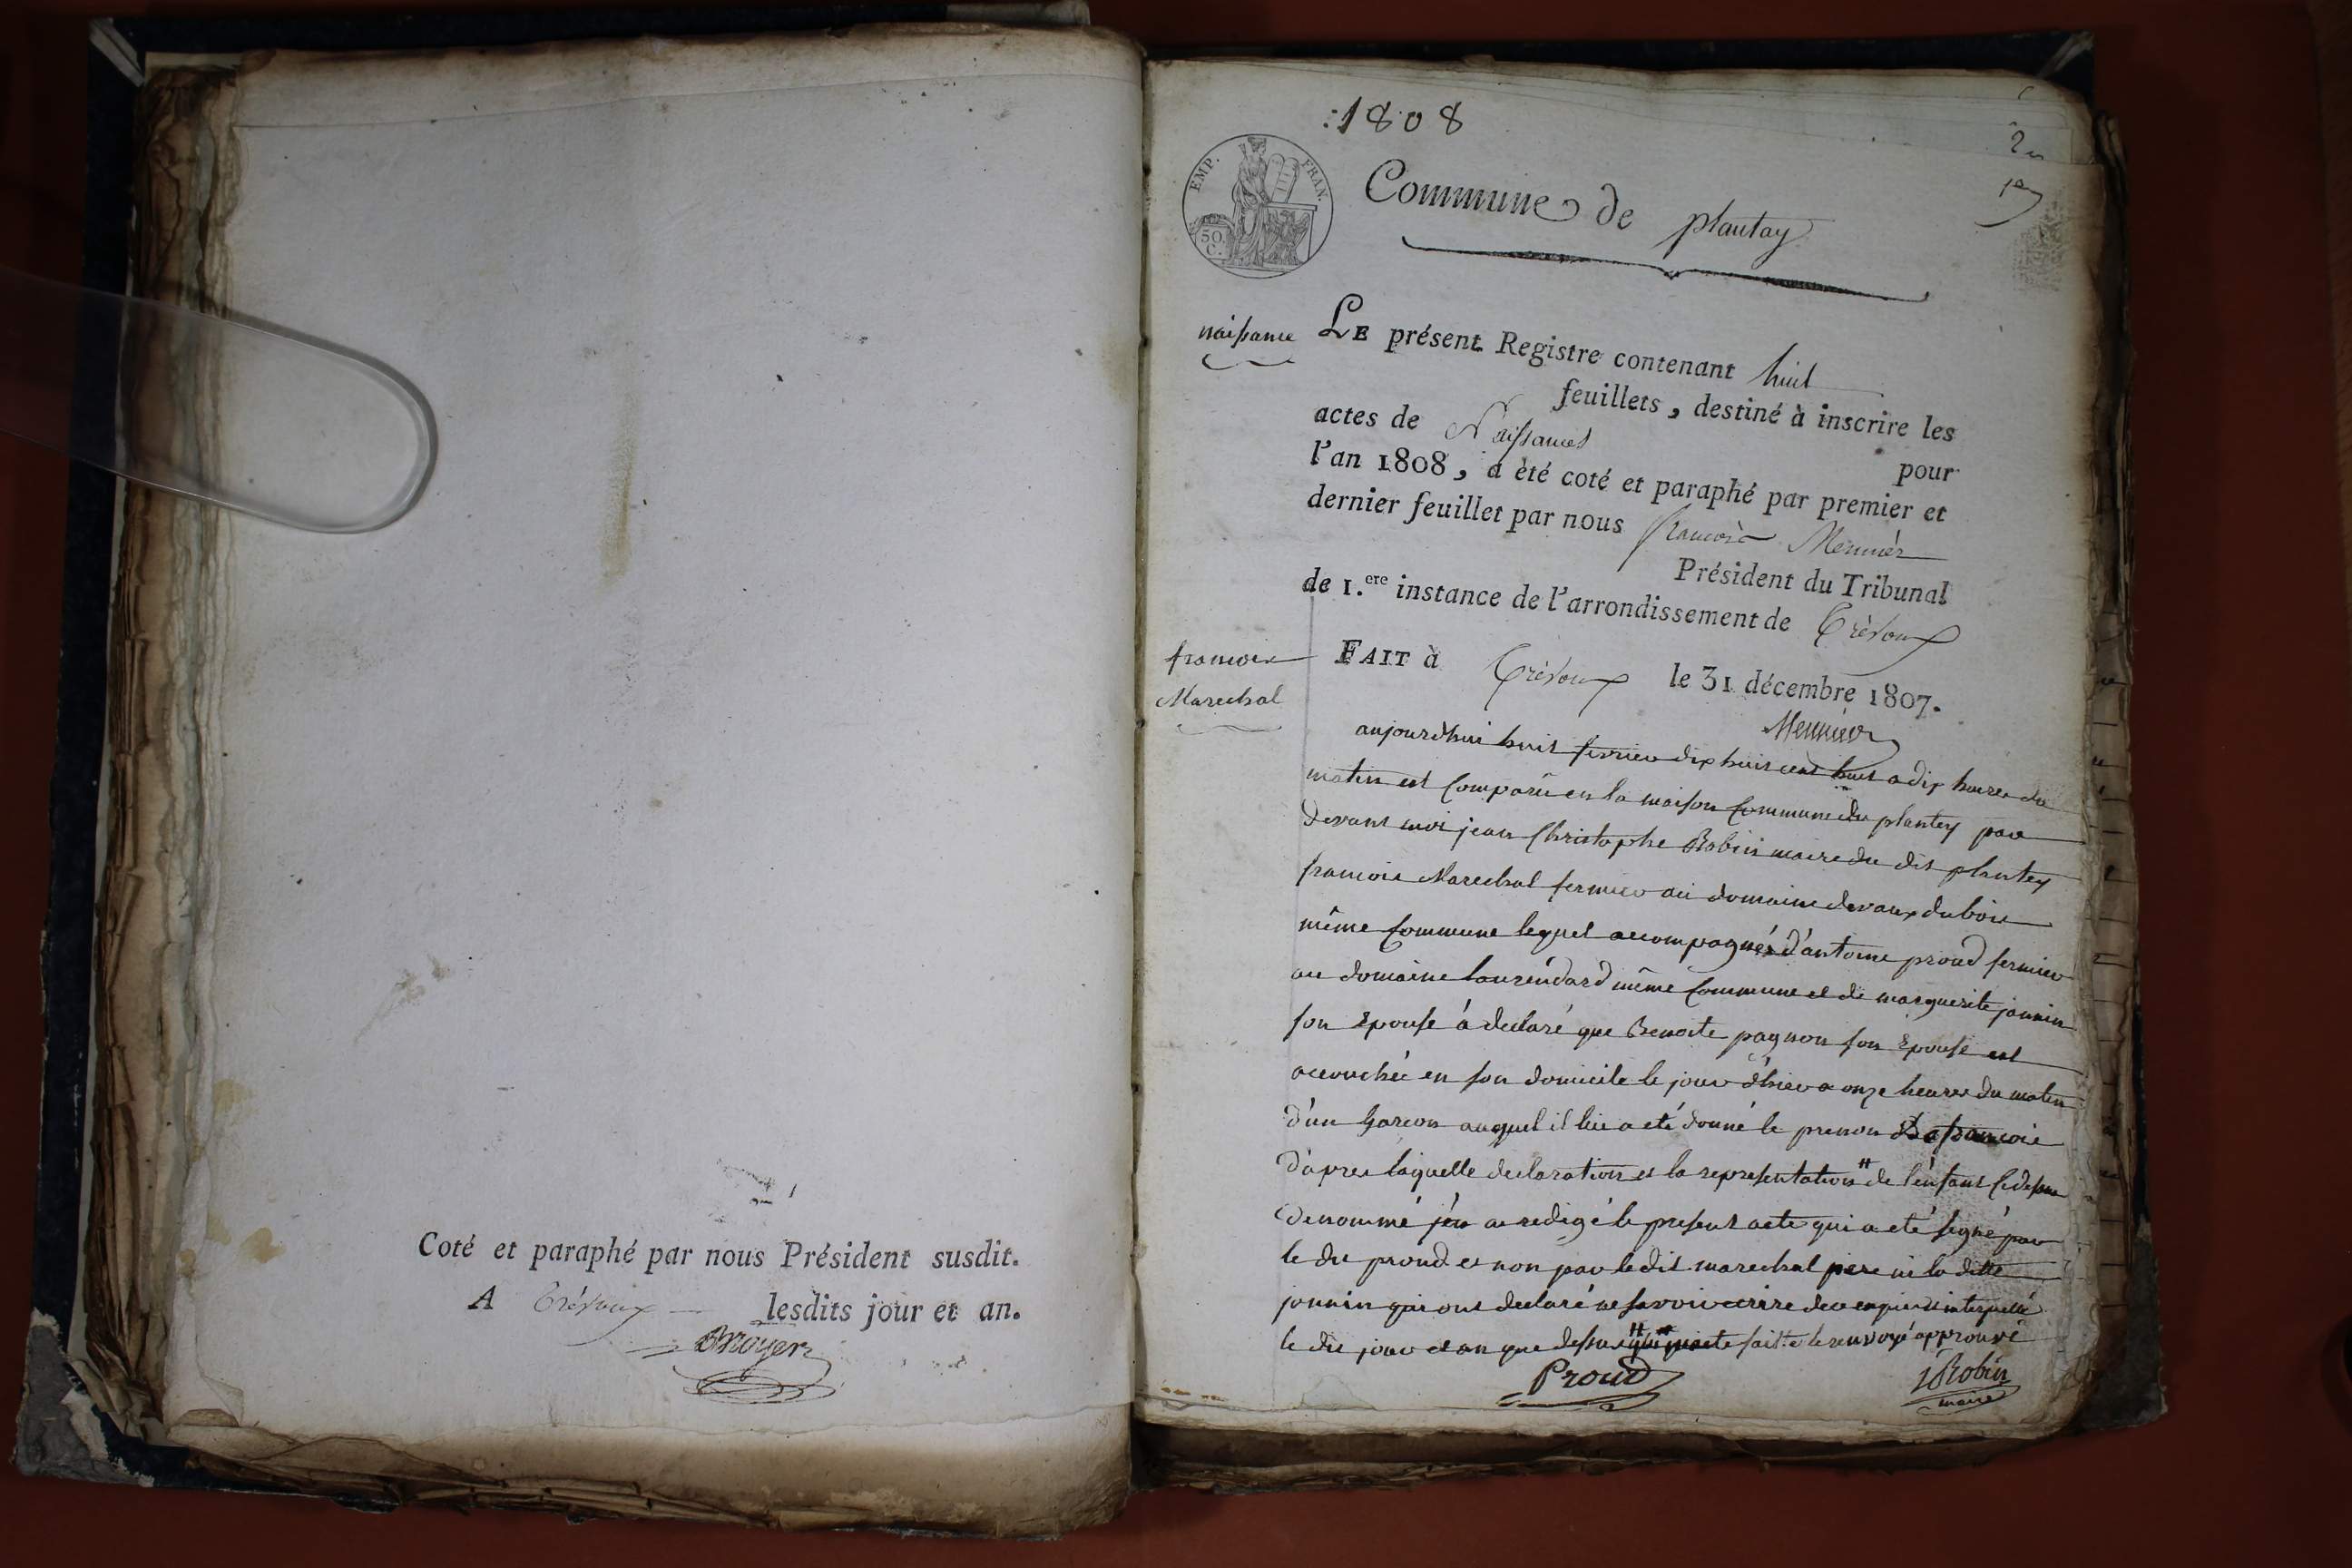 Coté et paraphé par nous Président susdit.
A Trévoux lesdits jour et an.
:1808
EMP. FRAN.
50.
C.
Commune de plantay
naissance
LE présent Registre contenant huit
feuillets, destiné à inscrire les
actes de Naissances
pour
l'an 1808, a été coté et paraphé par premier et
dernier feuillet par nous françois Mennier
Président du Tribunal
de 1.ere instance de l'arrondissement de Trévoux
FAIT à Trévoux le 31 décembre 1807.
Mennier
francois
Marechal
aujourdhui huit fevrier dix huit cent huit a dix heures du
matin est comparu en la maison commune du plantey par
devant moi jean Christophe Robin maire du dit plantey
francois Marechal fermier au domaine devaux dubois
même commune lequel accompagné d'antoine proud fermier
au domaine même commune et de marguerite jannin
son Epouse à declaré que Benoite pagnon son Epouse est
accouchée en son domicile le jour d'hier a onze heures du matin
d'un garcon auquel il lui a eté donné le prenom francois
d'apres laquelle declaration et la representation # de l'enfant cidessus
denommé j'ai redigé le present acte qui a eté signé par
le dit proud et non par ledit marechal pere ni la ditte
jannin qui ont declaré ne savoir ecrire de ce enquis et interpellé
le dit jour et an que dessus # faitte le renvoyé approuvé
Proud
Robin
maire